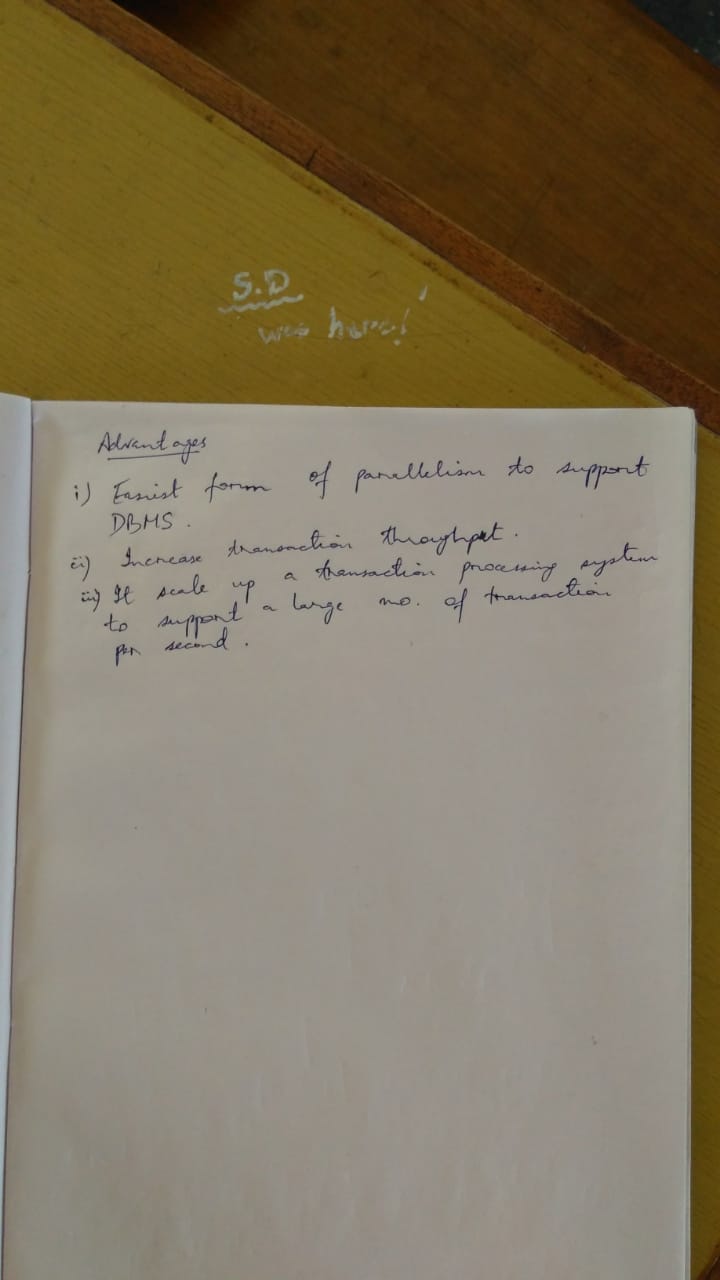 S.D
was here!
Advantages
i) Easiest form of parallelism to support
DBMS.
ii) Increase transaction throughput.
iii) It scale up a transaction processing system
to support a large no. of transaction
per second.